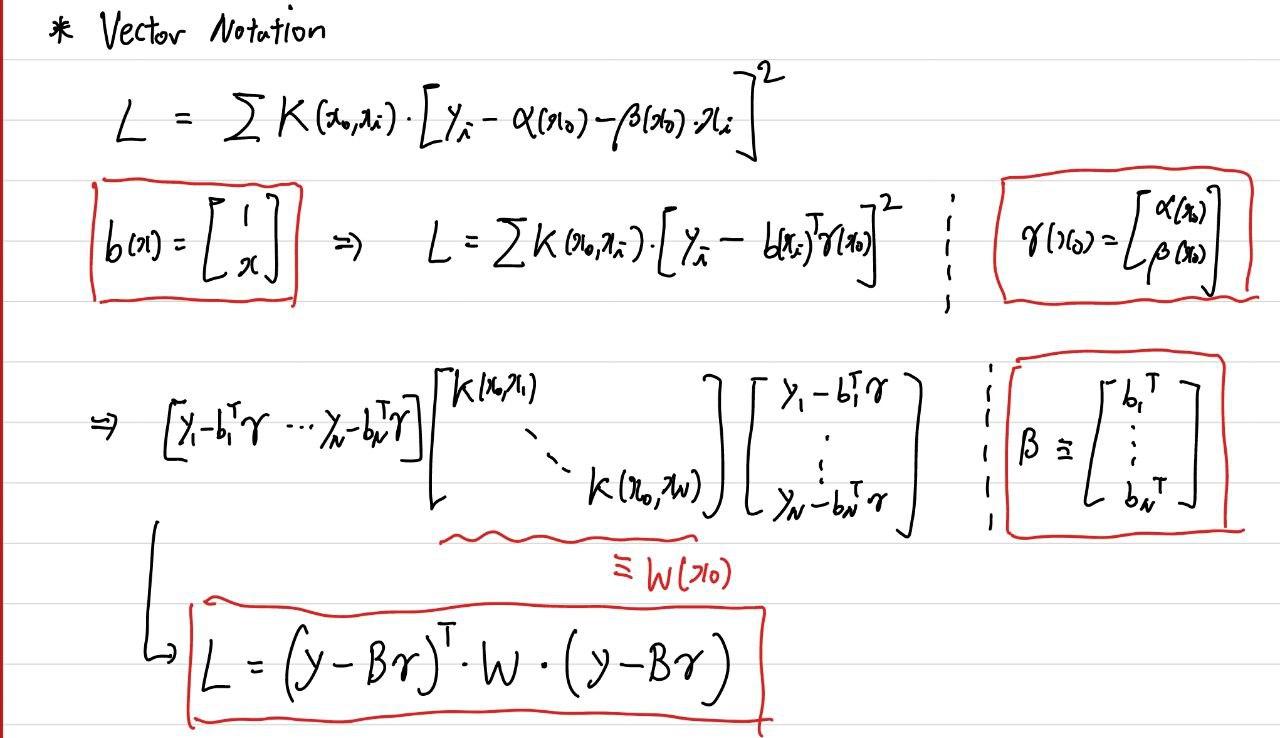 * Vector Notation
L = ∑ K(x₀,xᵢ)·[yᵢ − α(x₀) − β(x₀)·xᵢ]²
b(x) = [1 x] ⇒ L = ∑ K(x₀,xᵢ)·[yᵢ − b(xᵢ)ᵀγ(x₀)]² γ(x₀) = [α(x₀) β(x₀)]
⇒ [y₁−b₁ᵀγ ⋯ y_N−b_Nᵀγ] [K(x₀,x₁) ⋱ K(x₀,x_N)] [y₁−b₁ᵀγ ⋮ y_N−b_Nᵀγ] β ≡ [b₁ᵀ ⋮ b_Nᵀ]
≡ W(x₀)
↳ L = (y−Bγ)ᵀ·W·(y−Bγ)